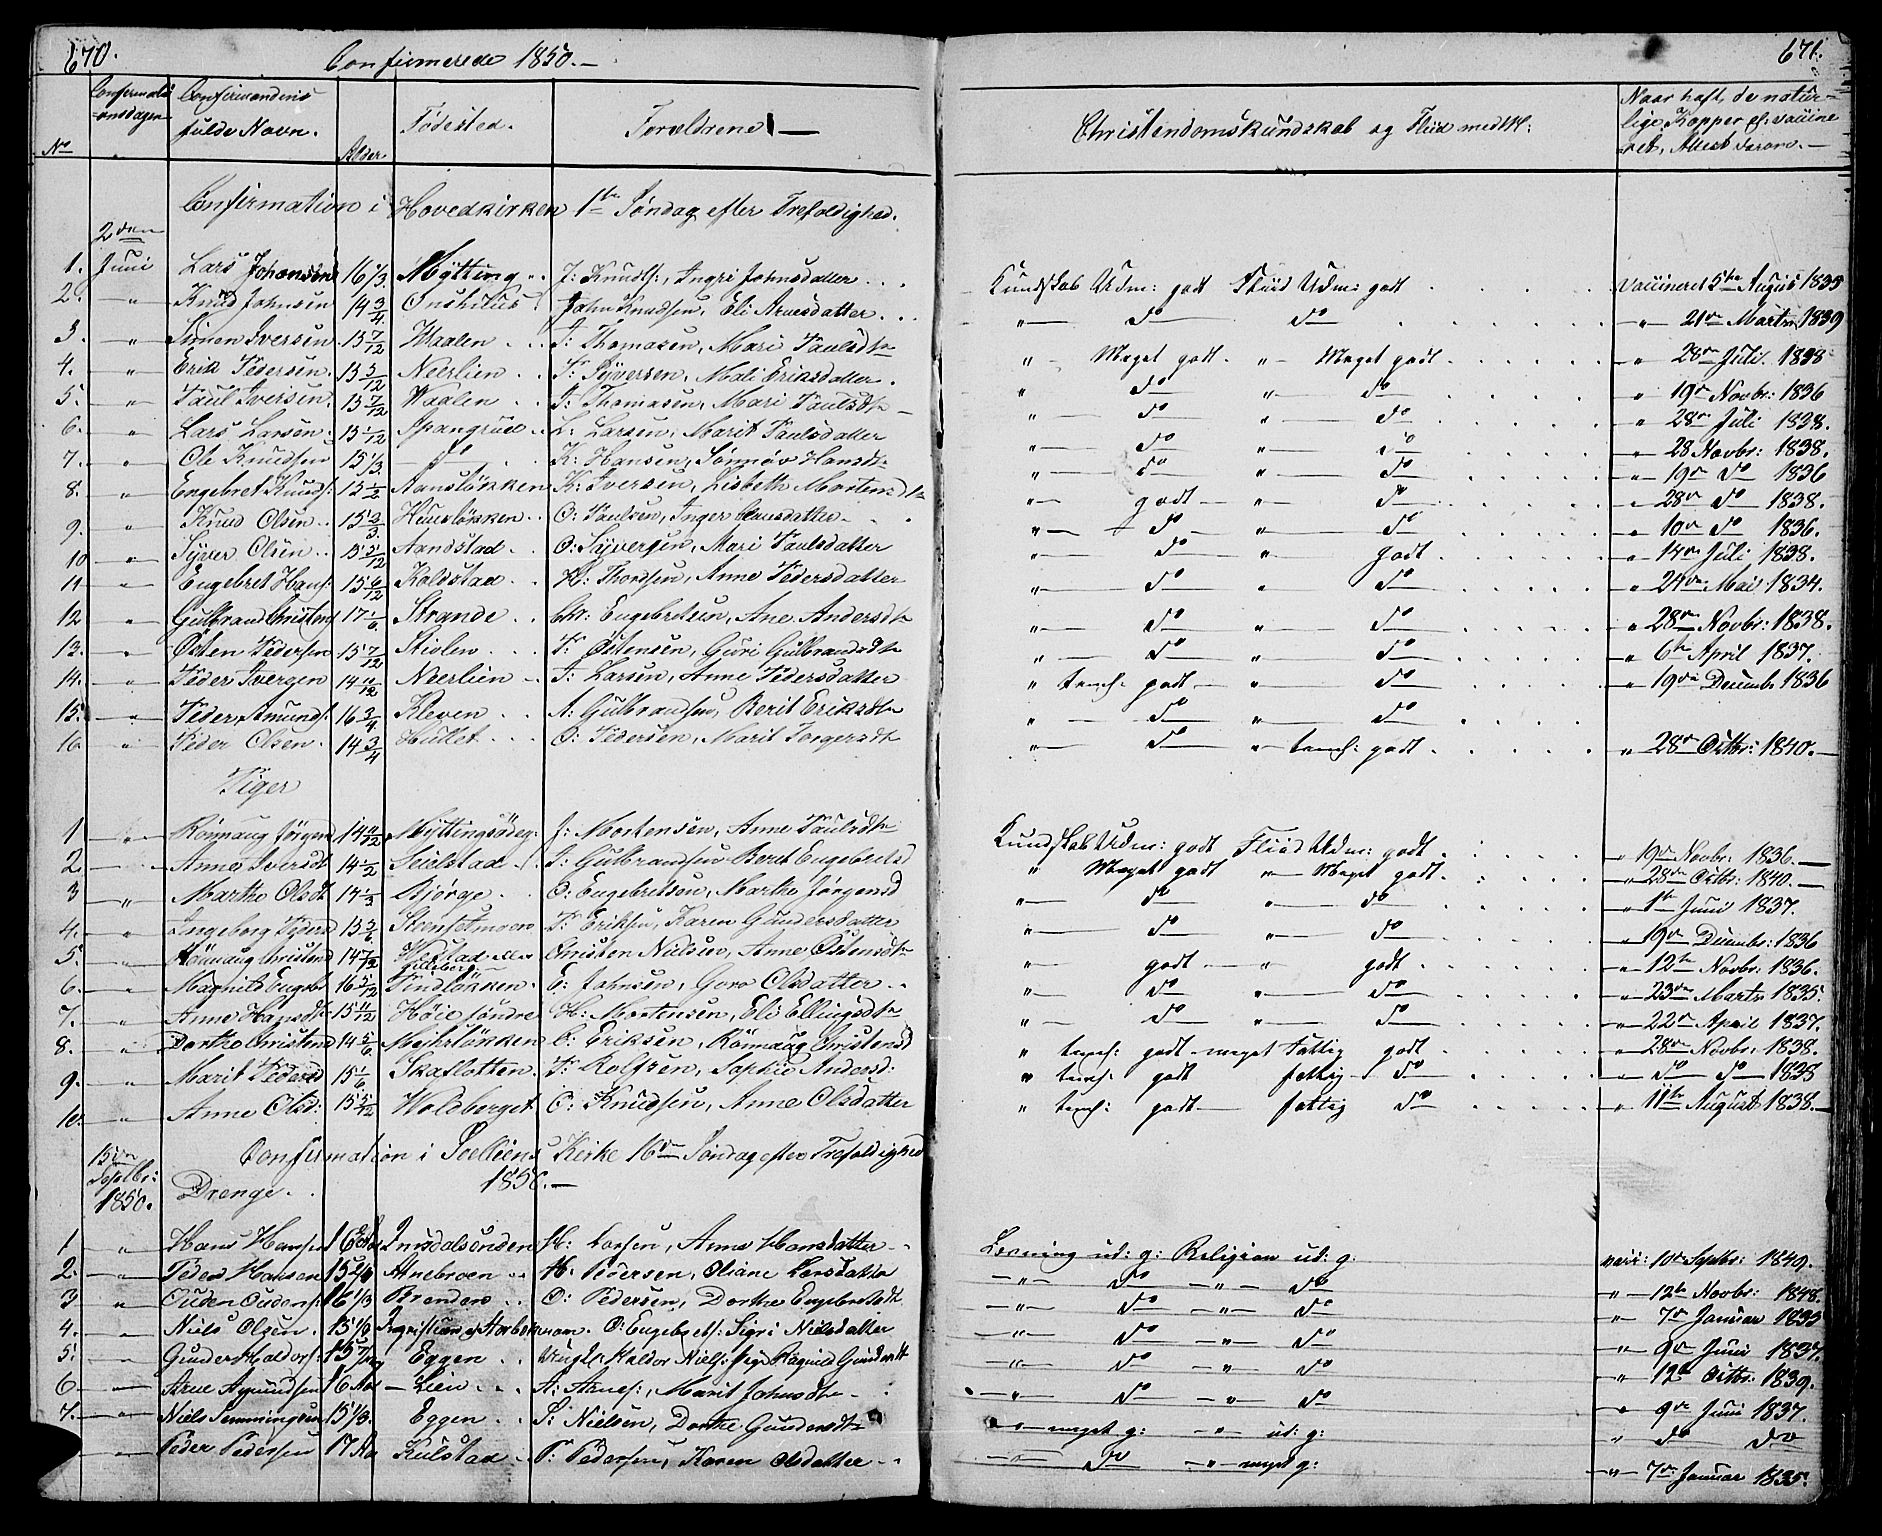 670.
Confirmerede 1850.
No
Confirmati-
onsdagen
Confirmandens
fulde Navn.
Alder
Fødested.
Forældrene
Confirmation i Hovedkirken 1ste Søndag efter Trefoldighed.
2den
1. Juni Lars Johansen 16 1/3. Mytting J: Knuds:, Ingri Johnsdatter
2. " Knud Johnsen 14 3/4 John Knudsen, Eli Arnesdatter
3. " Simen Iversen 15 7/12 Waalen I: Thomasen, Mari Paulsdtr
4. " Erik Pedersen 15 3/12 Neerlien P: Syversen, Mali Eriksdatter
5. " Paul Iversen. 15 7/12 Waalen I: Thomasen, Mari Paulsdtr
6. " Lars Larsen 15 1/12 Spangrud L: Larsen, Marit Paulsdatter
7. " Ole Knudsen 15 1/3. do K: Hansen, Hansdtr
8. " Engebret Knuds: 15 1/2 K: Iversen, Lisbeth Mortensdtr
9. " Knud Olsen 15 2/3 O: Paulsen, Inger
10 " Syver Olsen 15 5/12 Aandstad O: Syversen, Mari Paulsdatter
11 " Engebret Hans: 15 6/12 Koldstad H: Thordsen, Anne Pedersdatter
12 " Gulbrand Christens 17 1/6 Strande Chr: Engebretsen, Ane Andersdtr
13. " Østen Pedersen 15 7/12 Stiolen P: Østensen, Guri Gulbrandsdtr
14. " Peder Ivergen 14 11/12 Neerlien I: Larsen, Anne Pedersdatter
15. " Peder Amunds: 16 3/4 Kleven A: Gulbrandsen, Berit Eriksdtr
16. " Peder Olsen. 14 3/4 Hullet O: Pedersen, Marit Torgersdtr
Piger
1 " Rønnaug Jørgens 14 11/12 Myttingsødeg: J: Mortensen, Anne Paulsdtr
2. " Anne Iversdt 14 1/2 Seielstad I: Gulbrandsen Berit Engebretsd
3 " Marthe Olsdt 14 1/3 Bjørge O: Engebretsen, Marthe Jørgensd
4. " Ingeborg Pedersd 15 3/6 Steensetmoen P: Eriksen, Karen Gundersdatter
5. " Rønnaug Christensd 14 7/12 Christen Nielsen, Anne Østensdtr
6. " Magnild Engebr 16 5/12 Tindløkken. E: Johnsen, Goro Olsdatter
7. " Anne Hansdtr 15 11/12 Høie søndre H: Mortensen, Eli Ellingsdtr
8. " Dorthe Christensd 14 5/6 C: Eriksen, Rønnaug Christensd
9. " Marit Pedersd 15 1/6 Skaflotten. P: Rolfsen, Sophie Andersd:
10. " Anne Olsd: 15 5/12 Woldberget O: Knudsen, Anne Olsdatter
15de
Septbr:
1850.
Confirmation i Kirke 16de Søndag efter Trefoldighed
1850.
Drenge.
1 " Hans Hansen 16 H: Larsen, Anne Hansdatter
2. " Peder Hansen H: Pedersen, Oliane Larsdatter
3 " Ouden Oudens: 16 1/3 Brenden O: Pedersen, Dorthe Engebretsdt
4. " Niels Olsen. 15 1/6 O: Engebrets: Sigri Nielsdatter
5. " Gunder Haldors: 15 7/12 Eggen Haldor Niels: Pige Ragnild Gundersdt
6 " Arne Amundsen 16 Lien A: Arnes:, Marit Johnsdtr
7. " Niels Simmingsen 15 1/3. Eggen S: Nielsen, Dorthe Gundersdtr
" Peder Pedersen 17 Kulstad P: Pedersen, Karen Olsdatter
671.
Christendomskundskab og Fliid medhl:
Naar haft de natur-
lige Kopper el: vaccine
ret, Attest derom.
Kundskab Udm: godt Fliid Udm: godt vaccineret 5te August 1835
" do do " 21de Marts 1839
" Meget godt " Meget godt " 28de Juli 1838
" do " do " 19de Novbr: 1836
" do " do " 28de Juli 1838.
" do " do " 28 Novbr: 1838.
" do " do " 19de do 1836
" godt " do " 28de do 1838.
" do " do " 10de do 1836.
" do " godt " 14de Juli 1838.
" do " do " 24de Mai 1834.
" do " do " 28de Novbr: 1838.
" do " do " 6te April 1837.
" temml: godt " do " 19de Decembr 1836
" do " do
" do " temml: godt " 28de Octbr: 1840.
Kundskab Udm: godt Fliid Udm: godt " 19de Novbr: 1836.
" Meget godt " Meget godt " 28de Octbr: 1840.
" do " do " 1ste Juni 1837.
" do " do " 19de Decembr: 1836
" godt " godt " 12te Novbr: 1836.
" do " do " 23de Marts 1835.
" do " do " 22de April 1837.
" temml: godt meget fattig godt " 28de Novbr: 1838.
" temml: godt fattig do " do do 1838
" temml: godt fattig do " 11te August 1838.
Læsning ud: g: Religion ud: g: vacc: 10de Septbr: 1849.
" do " do " 12te Novbr: 1848.
" do " do " 7de Januar 1835
" do " do " 9de Juni 1837.
" do " do " 12te Octbr: 1839.
" do " do " 9de Juni 1837.
" meget g: " ud: g: " do do
" do " meget g: " 7de Januar 1835.